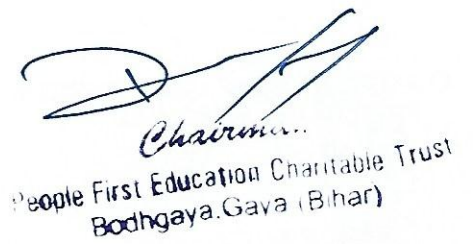 Chairman
People First Education Charitable Trust
Bodhgaya.Gaya (Bihar)